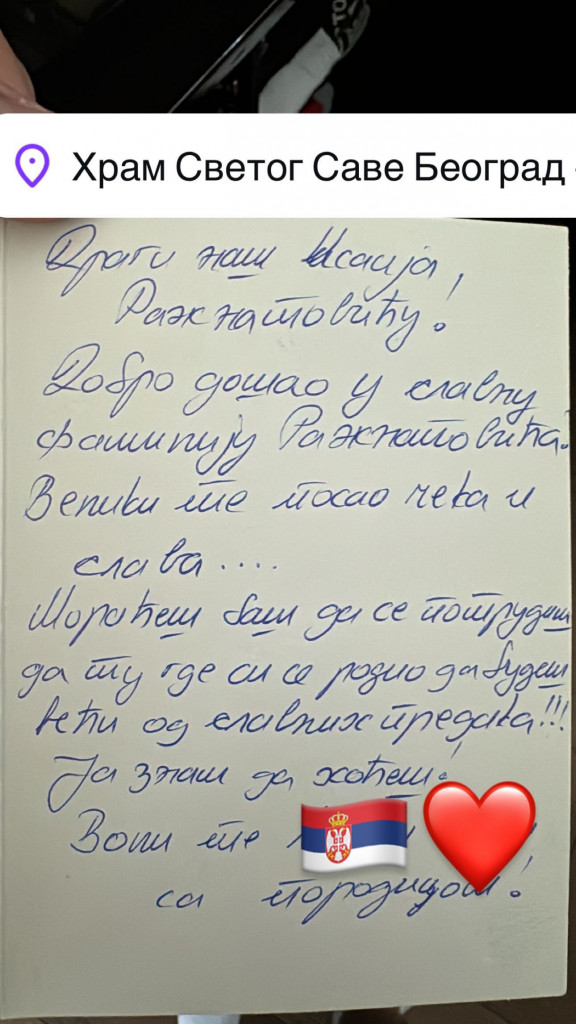 Храм Светог Саве Београд
Драги наш Исаија,
Ражнатовићу!
Добро дошао у славну
фамилију Ражнатовића!
Велики те посао чека и
слава....
Мораћеш баш да се потрудиш
да ту где си се родио да будеш
већи од славних предака!!!
Ја знам да хоћеш!
Воли те
са породицом!